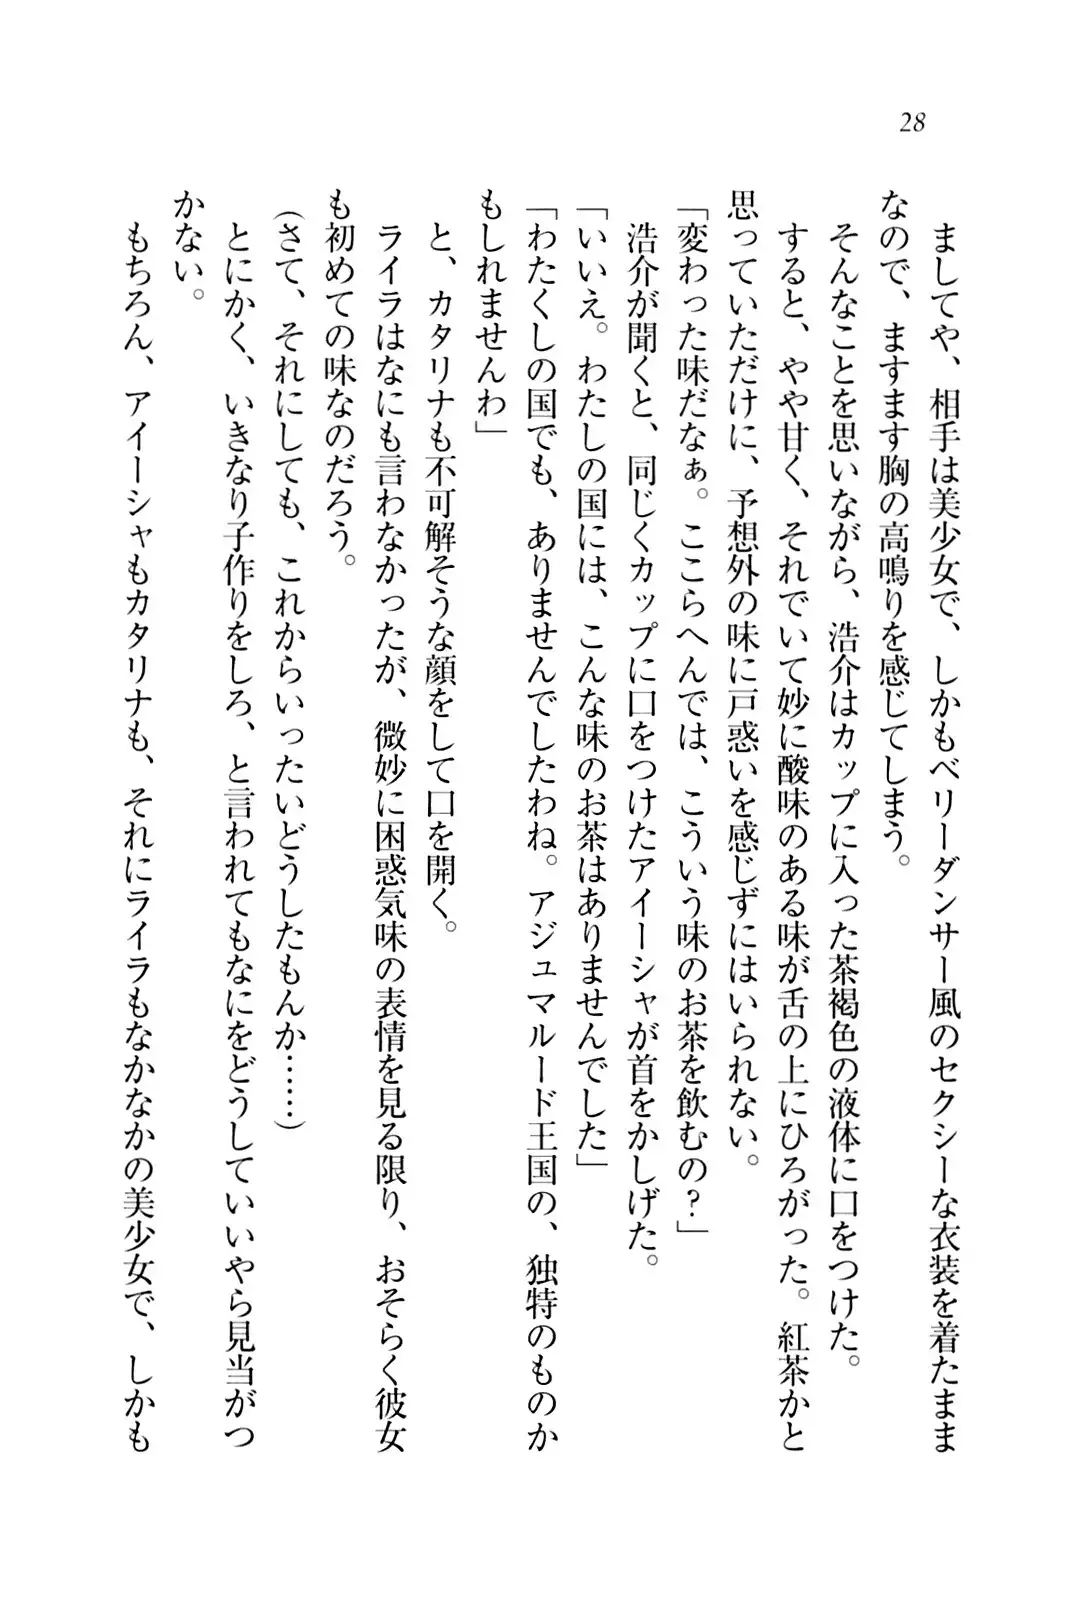 28
ましてや、相手は美少女で、しかもベリーダンサー風のセクシーな衣装を着たまま
なので、ますます胸の高鳴りを感じてしまう。
そんなことを思いながら、浩介はカップに入った茶褐色の液体に口をつけた。
すると、やや甘く、それでいて妙に酸味のある味が舌の上にひろがった。紅茶かと
思っていただけに、予想外の味に戸惑いを感じずにはいられない。
「変わった味だなぁ。ここらへんでは、こういう味のお茶を飲むの？」
浩介が聞くと、同じくカップに口をつけたアイーシャが首をかしげた。
「いいえ。わたしの国には、こんな味のお茶はありませんでした」
「わたくしの国でも、ありませんでしたわね。アジュマルード王国の、独特のものか
もしれませんわ」
と、カタリナも不可解そうな顔をして口を開く。
ライラはなにも言わなかったが、微妙に困惑気味の表情を見る限り、おそらく彼女
も初めての味なのだろう。
（さて、それにしても、これからいったいどうしたもんか……）
とにかく、いきなり子作りをしろ、と言われてもなにをどうしていいやら見当がつ
かない。
もちろん、アイーシャもカタリナも、それにライラもなかなかの美少女で、しかも